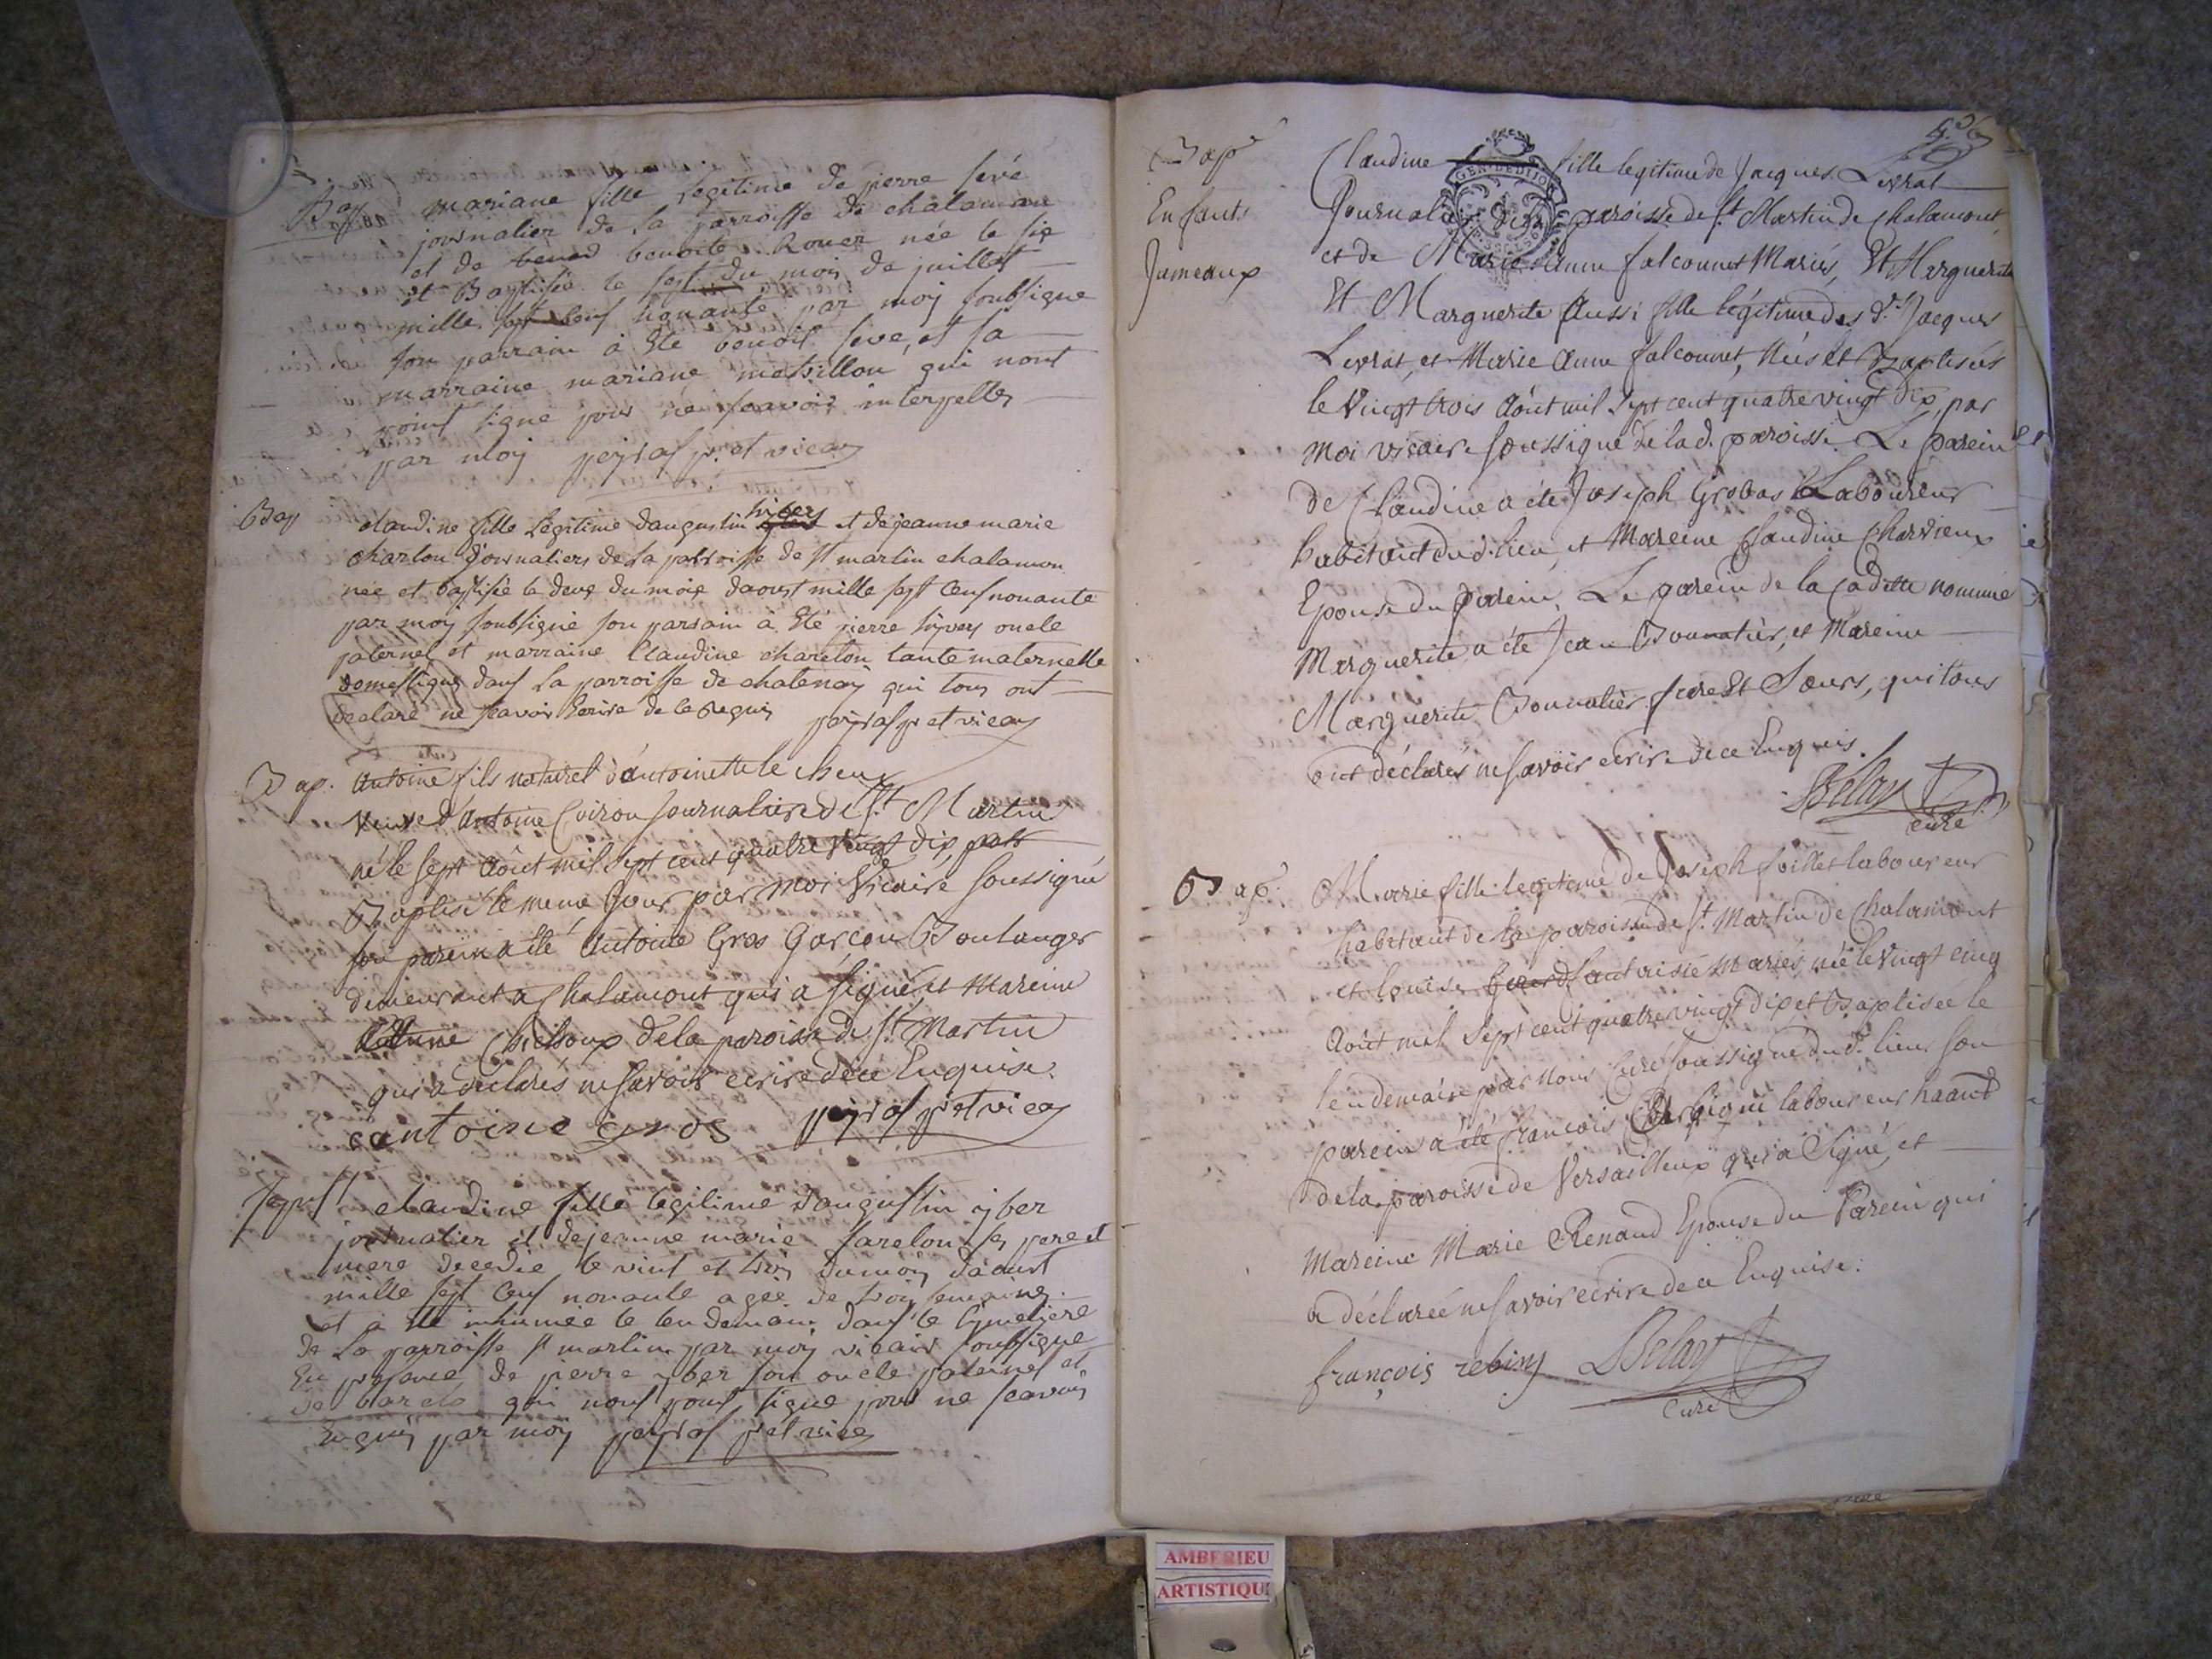 Bap mariane fille Legitime de pierre sevé
journalier de la parroisse de chalamon
et de benoite Rouer née le six
et Baptisée le sept du mois de juillet
mille sept cens nonante par moy soubsigne
son parrain à Eté benoit seve, et sa
marraine mariane massillon qui nont
point signé pour ne sçavoir interpellés
par moy peyraf p. et vicay
Bap claudine fille Legitime d'augustin hyvers et de jeanne marie
charlon journaliers de la parroisse de st martin chalamon
née et baptisée le deux du mois daoust mille sept Cens nonante
par moy soubsigné son parrain à Eté pierre hyvers oncle
paternel et marraine Claudine charelon tante maternelle
domestique dans la parroisse de chatenay qui tous ont
declaré ne sçavoir Ecrire de ce Requis peyraf p et vicay
Bap. Antoine fils naturel d'antoinette le cheux
veuve d'Antoine Coiron journaliere de St. Martin
né le sept Août mil sept cent quatre vingt dix
Baptisé le meme jour par moi Vicaire soussigné
son parein a été Antoine Gros Garçon Boulanger
demeurant a Chalamont qui a signé, et Mareine
Chichoux de la paroisse de St. Martin
qui a déclarés ne savoir ecrire de ce Enquise.
antoine gros peyraf p et vicay
Sepult claudine fille legitime d'augustin yber
journalier et de jeanne marie sarelon ses pere et
mere decedée le vint et trois du mois d'aoust
mille sept Cens nonante agée de trois semaines
et a été inhumée le lendemain dans le Cymetiere
de La parroisse st martin par moy vicaire soubsigné
En presence de pierre yber son oncle paternel et
de qui nont point signé pour ne sçavoir
Enquis par moy peyraf p et vicay
Bap
Enfants
Jumeaux
Claudine fille legitime de Jacques Livrat
Journalier de la paroisse de St. Martin de Chalamont
et de Marie Anne falconnet Mariés, Et Marguerite
Et Marguerite Aussi fille légitime des d. Jacques
Livrat, et Marie Anne falconnet, Nées et Baptisées
le Vingt trois Août mil sept cent quatre vingt Dix, par
Moi vicaire soussigné de la d. paroisse. Le parein
de Claudine a été Joseph Grobas Laboureur
habitant du d. lieu, et Mareine Claudine Charvieux
Epouse du parein, Le parein de la Cadette nommé
Marguerite a été Jean Bonnatier, et Mareine
Marguerite Bonnatier frere Et Sœurs, qui tous
ont déclarés ne savoir ecrire de ce Enquis.
Belay
curé
Bap. Marie fille legitime de Joseph foillet laboureur
habitant de la paroisse de St. Martin de Chalamont
et Louise Mariés, née le Vingt cinq
Août mil sept cent quatre vingt dix et Baptisée le
lendemain par Nous Curé soussigné du d. lieu son
parein a été françois laboureur
de la paroisse de Versailleux qui a Signé, et
Mareine Marie Renaud Epouse du Parein qui
a déclarée ne savoir ecrire de ce Enquise.
françois rebiny Belay
Curé
GEN. DE DIJON
AMBERIEU
ARTISTIQU